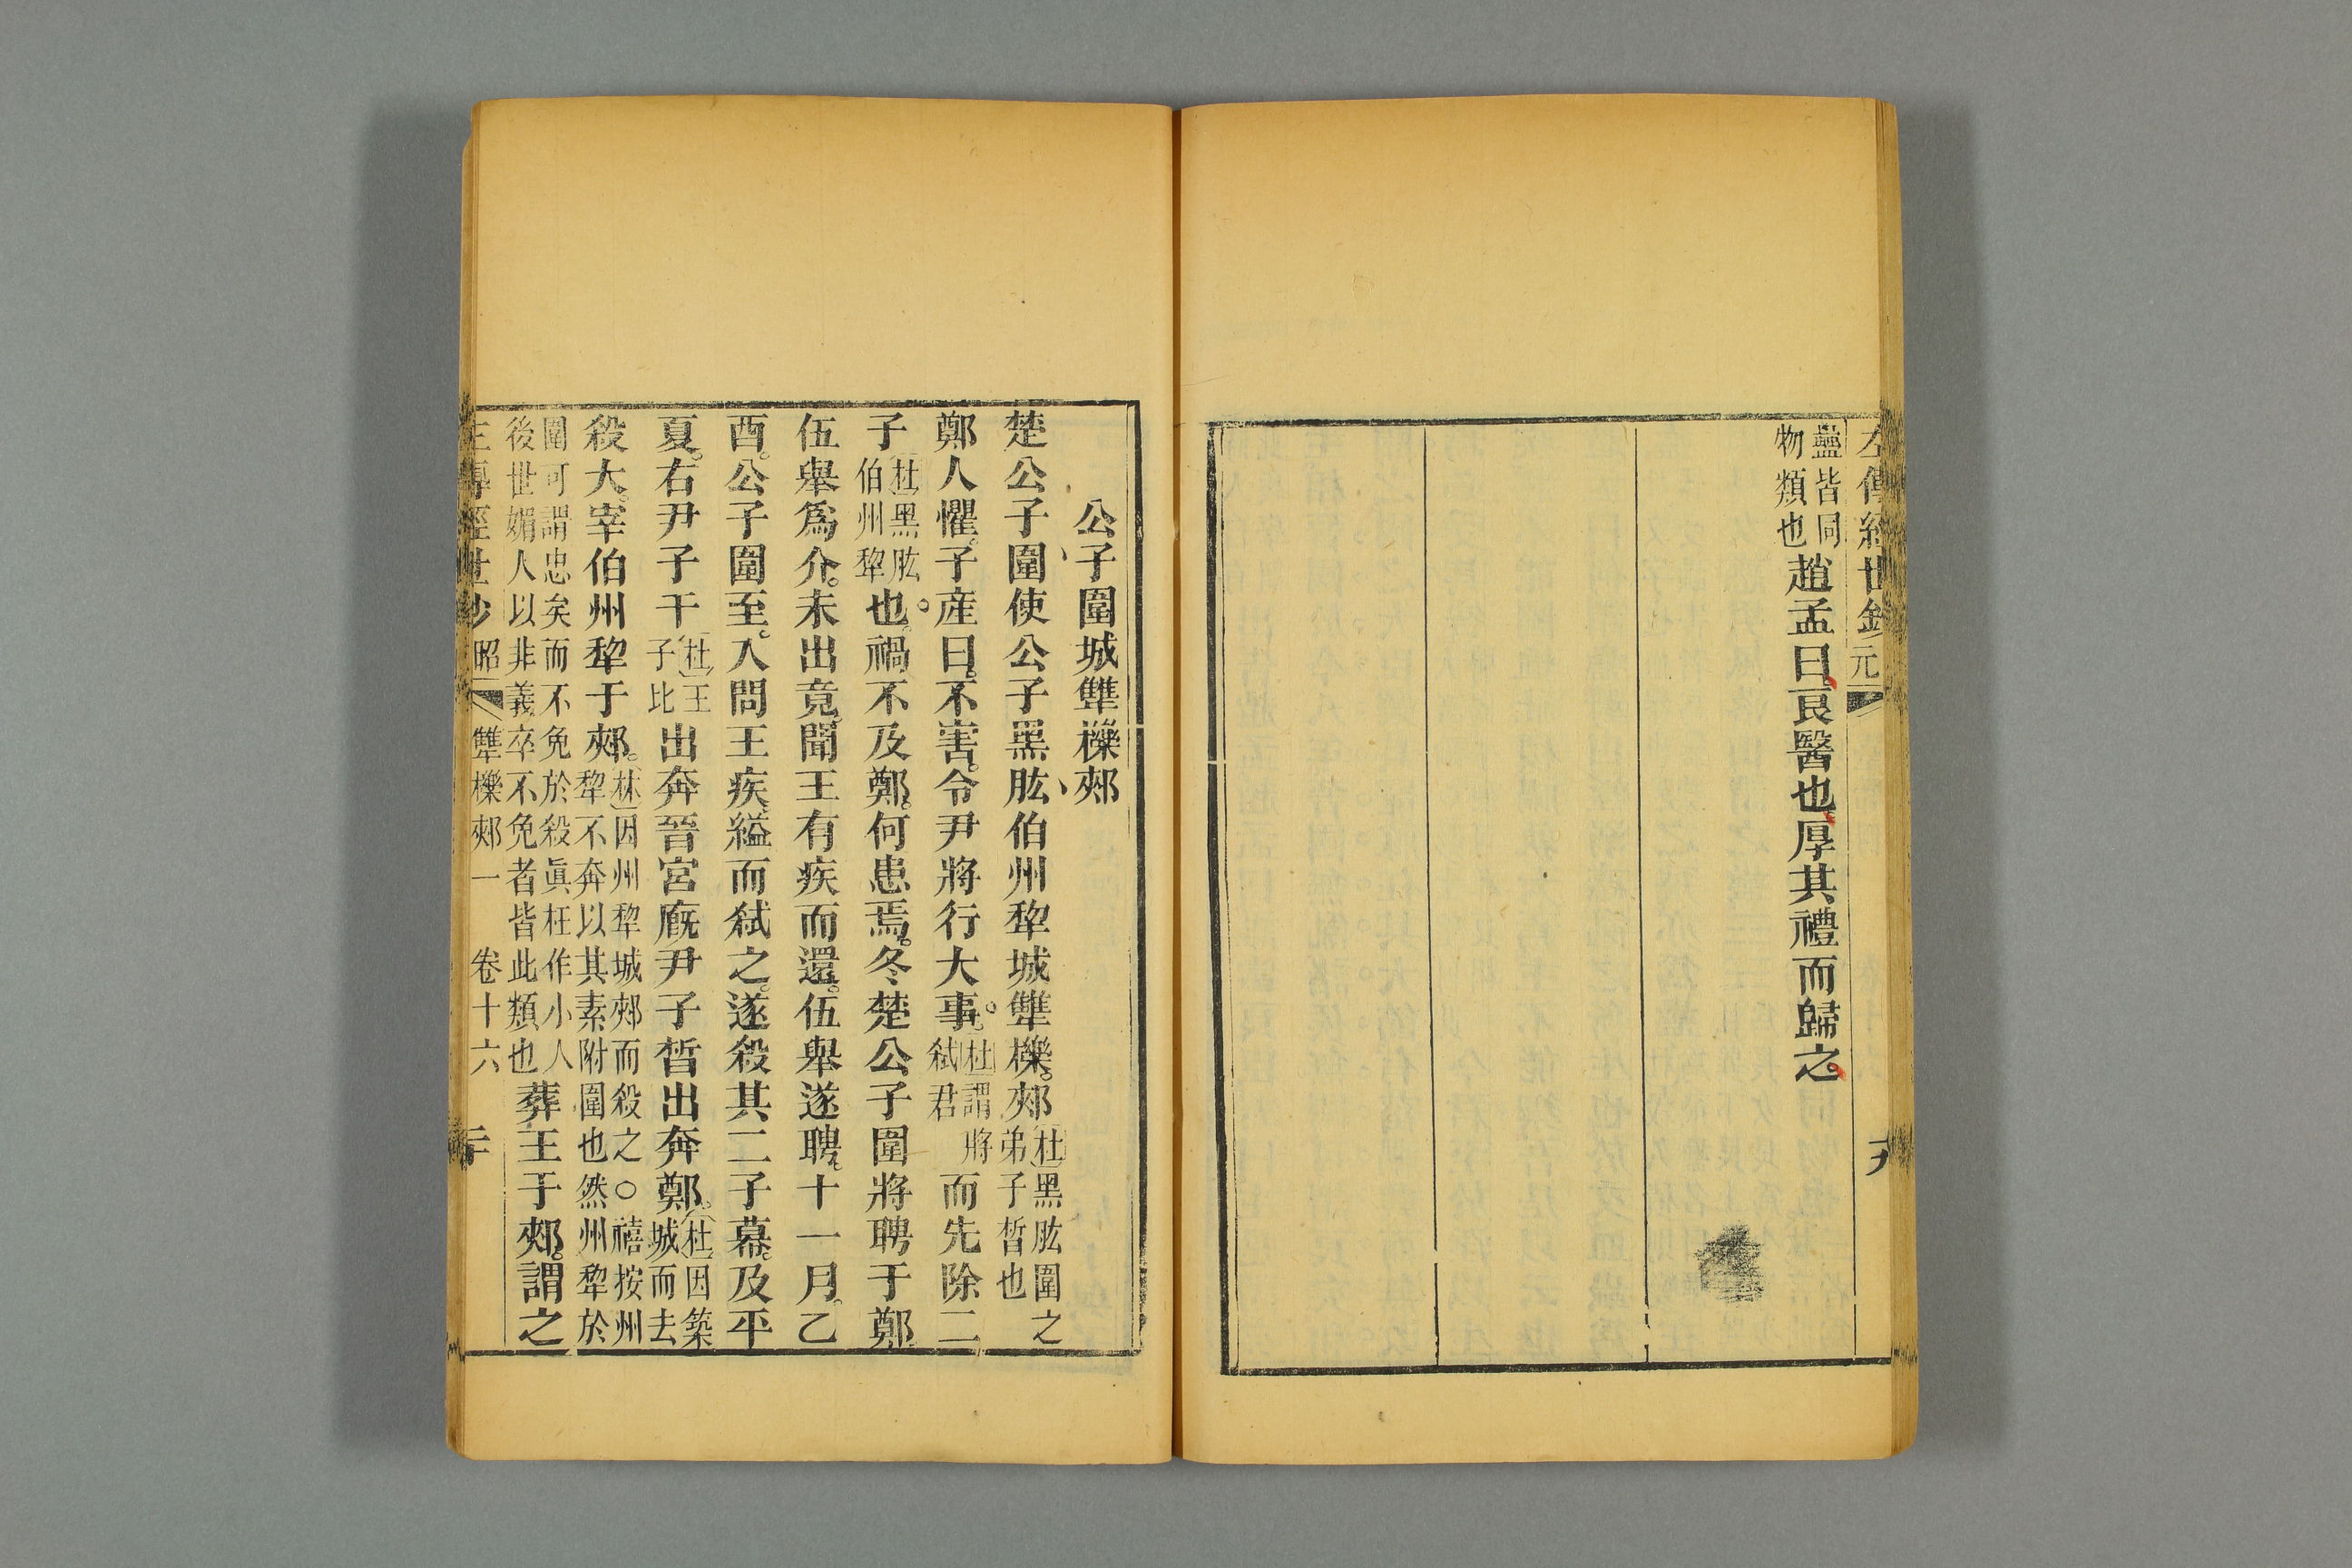 左傳經世鈔 元
蠱皆同
物類也
趙孟曰良醫也厚其禮而歸之
公子圍城犫櫟郟
楚公子圍使公子黑肱伯州犂城犫櫟郟
杜黑肱圍之
弟子晳也
鄭人懼子產曰不害令尹將行大事
杜謂將
弒君
而先除二
子
杜黑肱
伯州犂
也禍不及鄭何患焉冬楚公子圍將聘于鄭
伍舉爲介未出竟聞王有疾而還伍舉遂聘十一月乙
酉公子圍至入問王疾縊而弒之遂殺其二子幕及平
夏右尹子干
杜王
子比
出奔晉宮廐尹子晳出奔鄭
杜因築
城而去
殺大宰伯州犂于郟
林因州犂城郟而殺之○禧按州
犂不奔以其素附圍也然州犂於
圍可謂忠矣而不免於殺眞枉作小人
後世媚人以非義卒不免者皆此類也
葬王于郟謂之
左傳經世鈔 昭 犫櫟郟一 卷十六